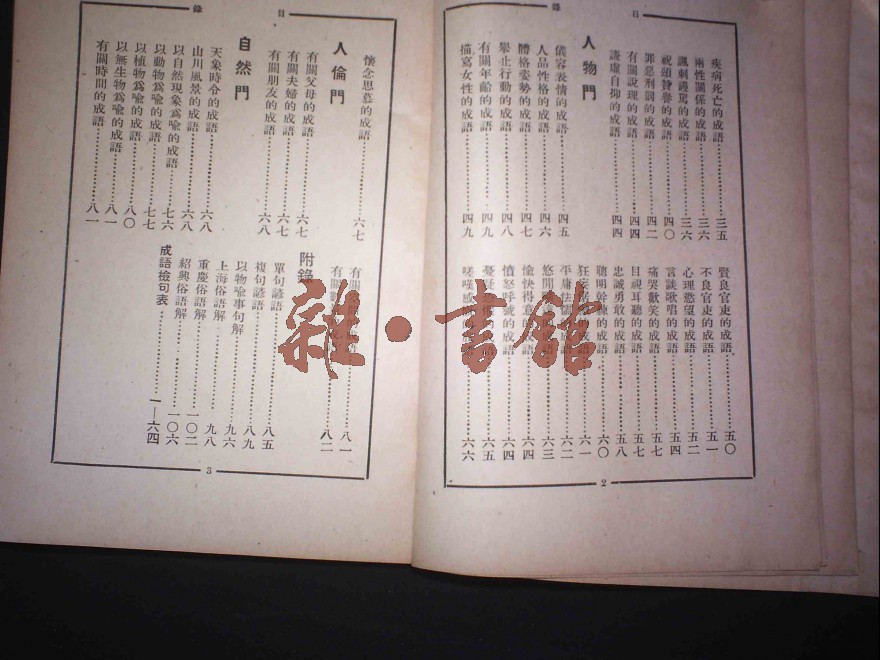 目錄
疾病死亡的成語 三五
兩性關係的成語 三六
諷刺謾罵的成語 三六
祝頌贊譽的成語 四〇
罪惡刑罰的成語 四二
有關說理的成語 四四
謙虛自抑的成語 四四
人物門
儀容表情的成語 四五
人品性格的成語 四六
體格姿勢的成語 四七
舉止行動的成語 四八
有關年齡的成語 四九
描寫女性的成語 四九
賢良官吏的成語 五〇
不良官吏的成語 五一
心理慾望的成語 五二
言談歌唱的成語 五四
痛哭歡笑的成語 五七
目視耳聽的成語 五七
忠誠勇敢的成語 五八
聰明幹練的成語 六〇
狂妄的成語 六一
平庸怯懦的成語 六二
悠閒的成語 六三
愉快得意的成語 六四
憤怒呼號的成語 六四
憂疑的成語 六五
嗟嘆感 六六
2
目錄
懷念思慕的成語 六七
人倫門
有關父母的成語 六七
有關夫婦的成語 六七
有關朋友的成語 六八
自然門
天象時令的成語 六八
山川風景的成語 六八
以自然現象爲喩的成語 七六
以動物爲喩的成語 七七
以植物爲喩的成語 八〇
以無生物爲喩的成語 八一
有關時間的成語 八一
有關 八一
有關數 八二
附錄
單句諺語 八五
複句諺語 八九
以物喩事句解 九六
上海俗語解 九八
重慶俗語解 一〇二
紹興俗語解 一〇六
成語檢句表 一—六四
3
雜·書館